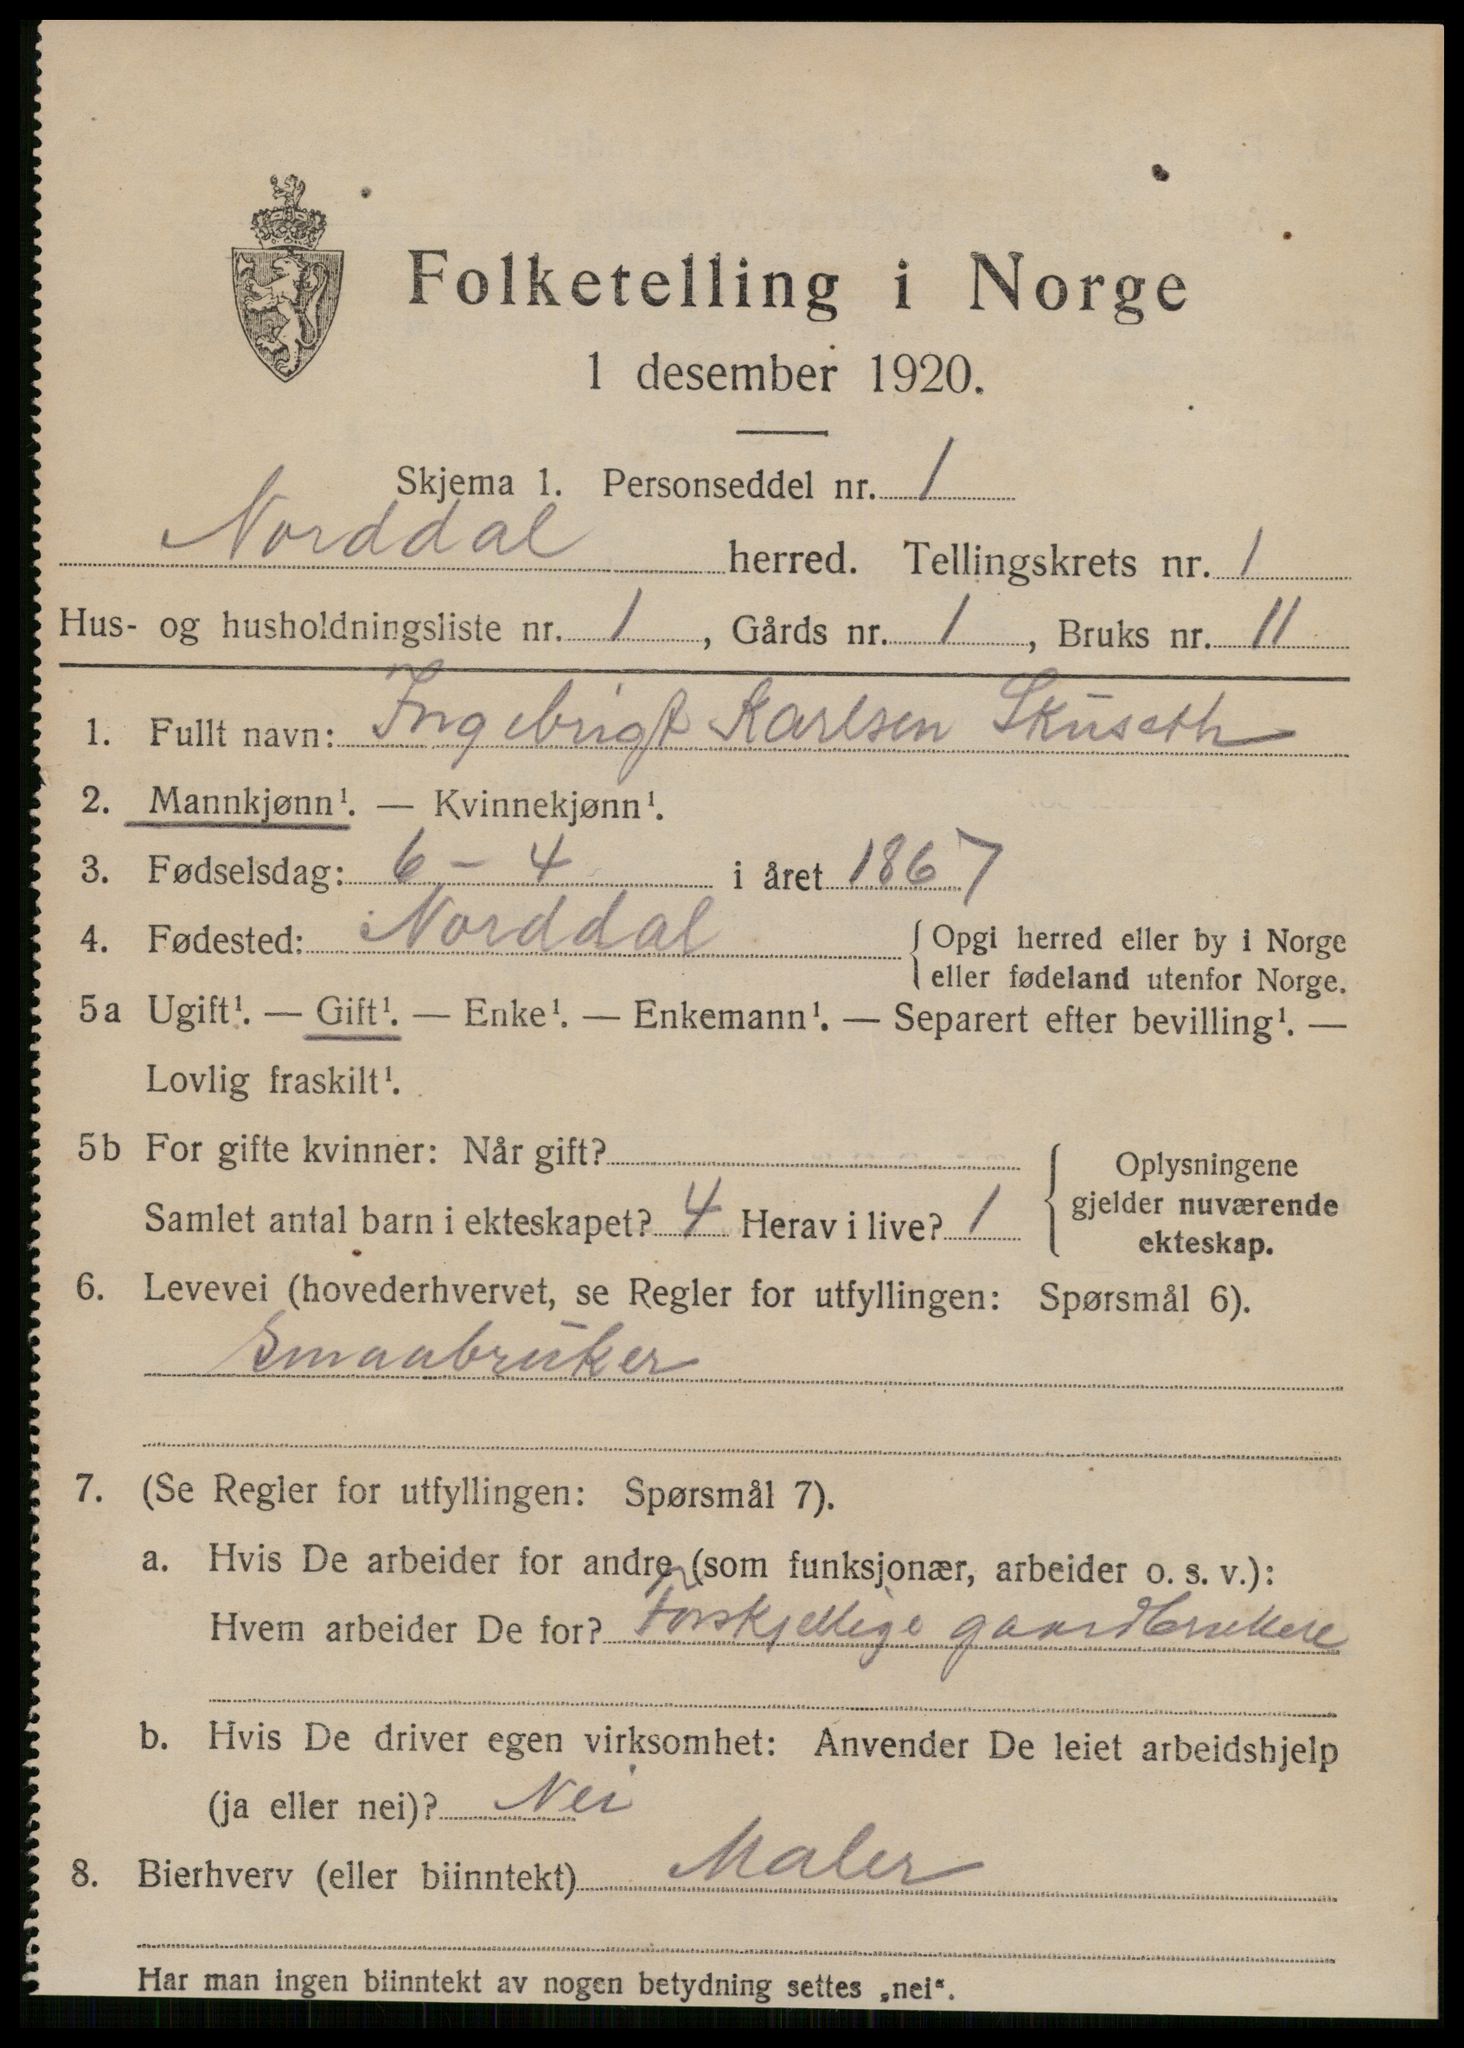 Folketelling i Norge
1 desember 1920.
Skjema 1. Personseddel nr. 1
Norddal herred. Tellingskrets nr. 1
Hus- og husholdningsliste nr. 1, Gårds nr. 1, Bruks nr. 11
1. Fullt navn: Ingebrigt Karlsen Skuseth
2. Mannkjønn¹. — Kvinnekjønn¹.
3. Fødselsdag: 6 - 4 i året 1867
4. Fødested: Norddal { Opgi herred eller by i Norge
eller fødeland utenfor Norge.
5a Ugift¹. — Gift¹. — Enke¹. — Enkemann¹. — Separert efter bevilling¹. —
Lovlig fraskilt¹.
5b For gifte kvinner: Når gift?
Samlet antal barn i ekteskapet? 4 Herav i live? 1
{ Oplysningene
gjelder nuværende
ekteskap.
6. Levevei (hovederhvervet, se Regler for utfyllingen: Spørsmål 6).
Smaabruker
7. (Se Regler for utfyllingen: Spørsmål 7).
a. Hvis De arbeider for andre (som funksjonær, arbeider o. s. v.):
Hvem arbeider De for? Forskjellige gaardbrukere
b. Hvis De driver egen virksomhet: Anvender De leiet arbeidshjelp
(ja eller nei)? Nei
8. Bierhverv (eller biinntekt) Maler
Har man ingen biinntekt av nogen betydning settes „nei“.